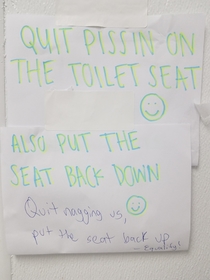 QUIT PISSIN ON
THE TOILET SEAT
ALSO PUT THE
SEAT BACK DOWN
Quit nagging us,
put the seat back up
- Equality!